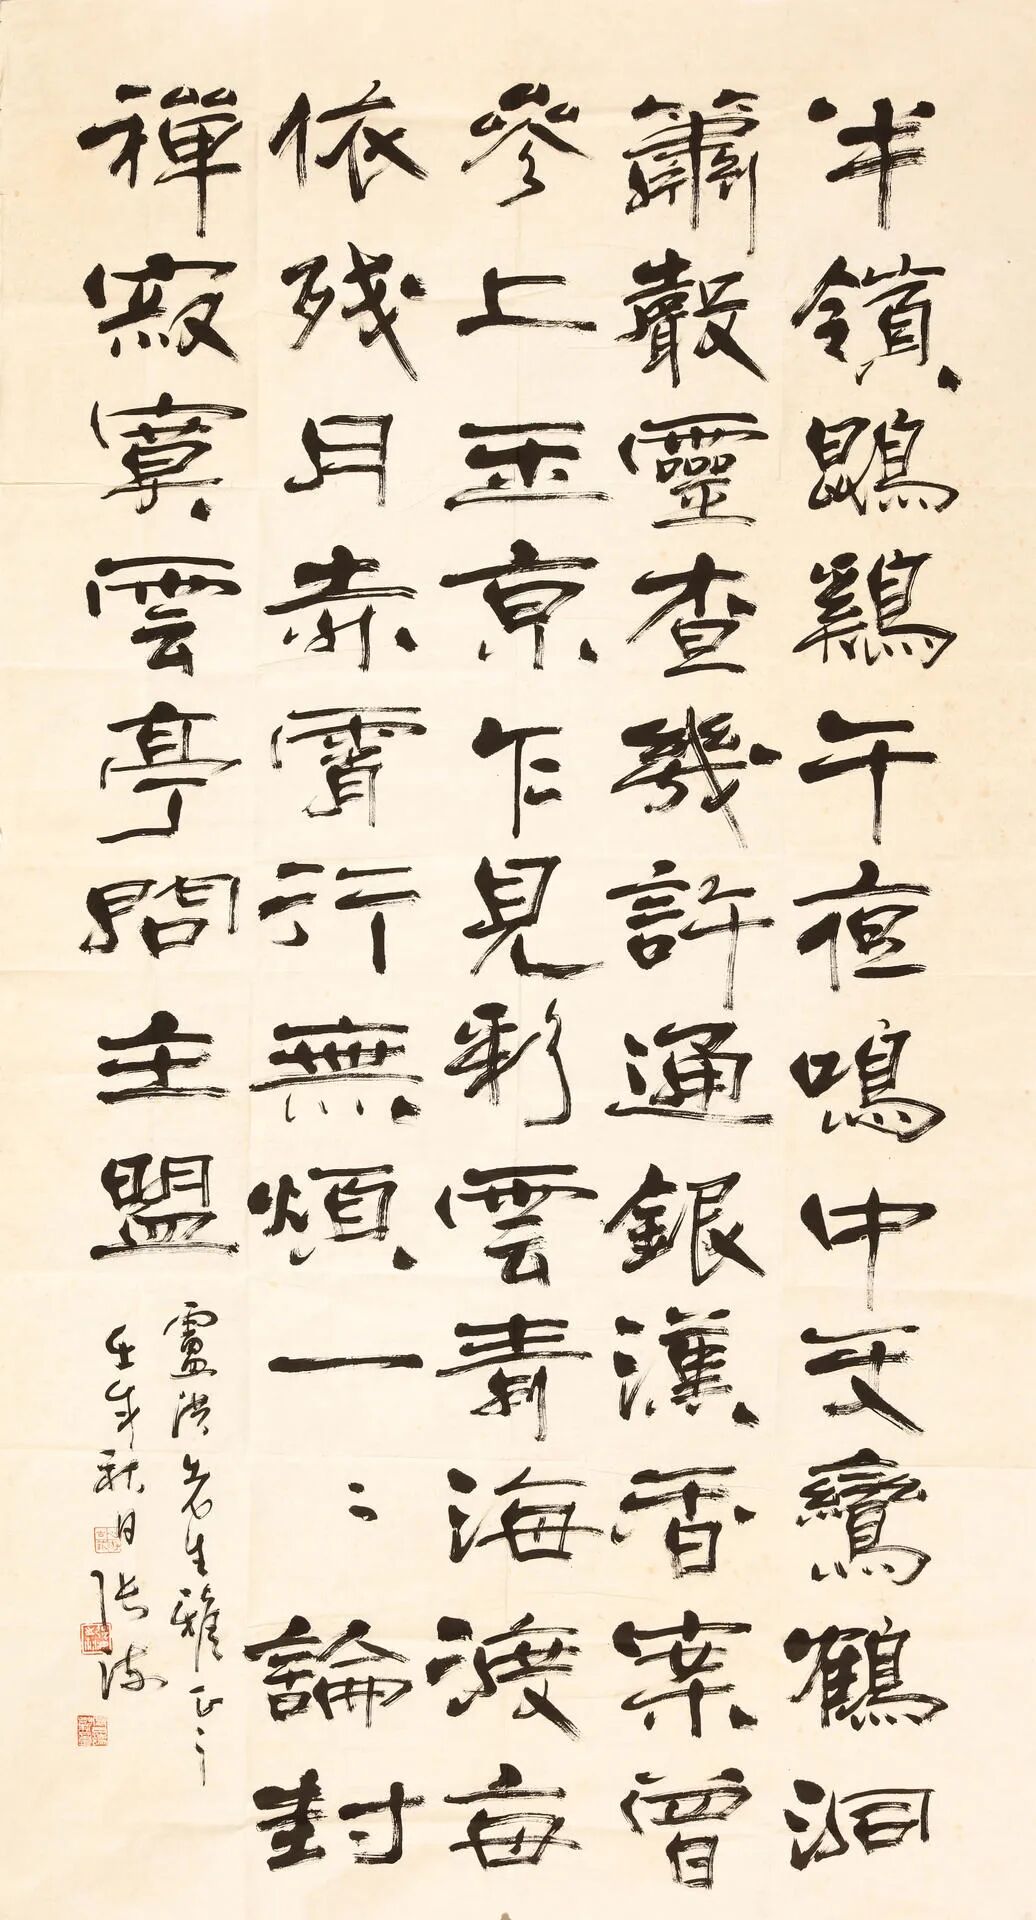 半嶺鵾鷄午夜鳴中天鸞鶴洞
簫聲靈查幾許通銀漢香案曾
參上玉京乍見彩雲青海渡每
依残月赤霄行無煩一〻論封
禪寂寞雲亭問主盟
盧洪先生雅正之
壬戌秋日張海